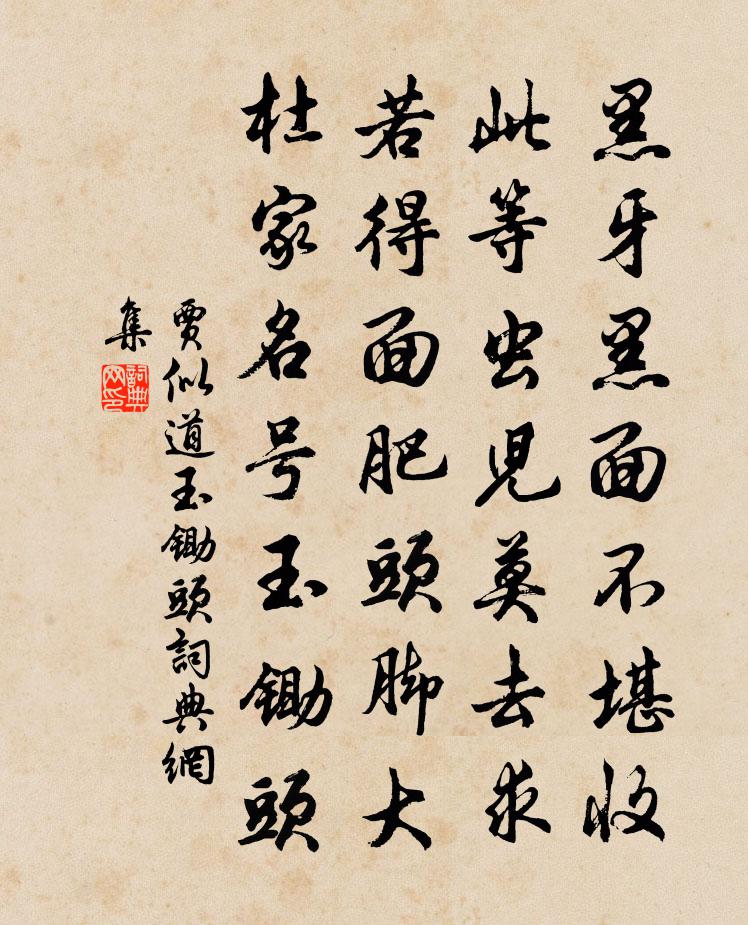 黑牙黑面不堪收
此等虫児莫去求
若得面肥頭脚大
杜家名号玉鋤頭
賈似道玉鋤頭詞典網
集
詞典网印